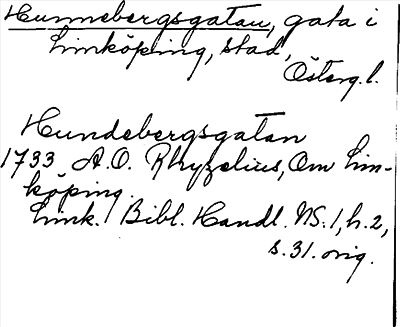 Hunnebergsgatan, gata i
Linköping, stad,
Österg. l.
Hundebergsgatan
1733 A.O. Rhyzelius, Om Lin-
köping.
Link. Bibl. Handl. NS. 1, h. 2,
s. 31. orig.